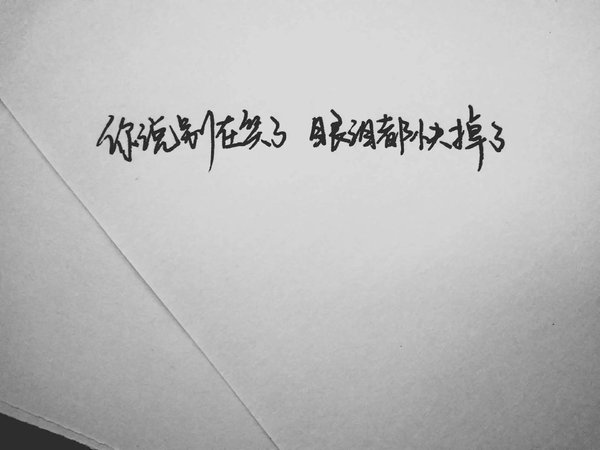 你说别在笑了 眼泪都快掉了